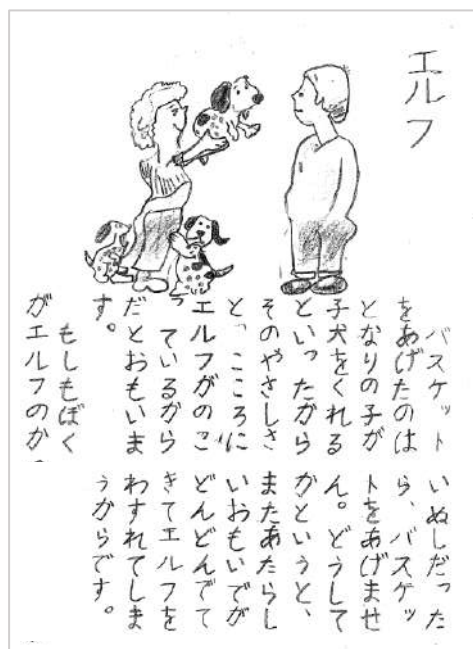 エルフ
バスケット
をあげたのは
となりの子が
子犬をくれる
といったから
そのやさしさ
と、こころに
エルフがのこ
っているから
だとおもいま
す。
もしもぼく
がエルフのか
いぬしだった
ら、バスケッ
トをあげませ
ん。どうして
かというと、
またあたらし
いおもいでが
どんどんでて
きてエルフを
わすれてしま
うからです。